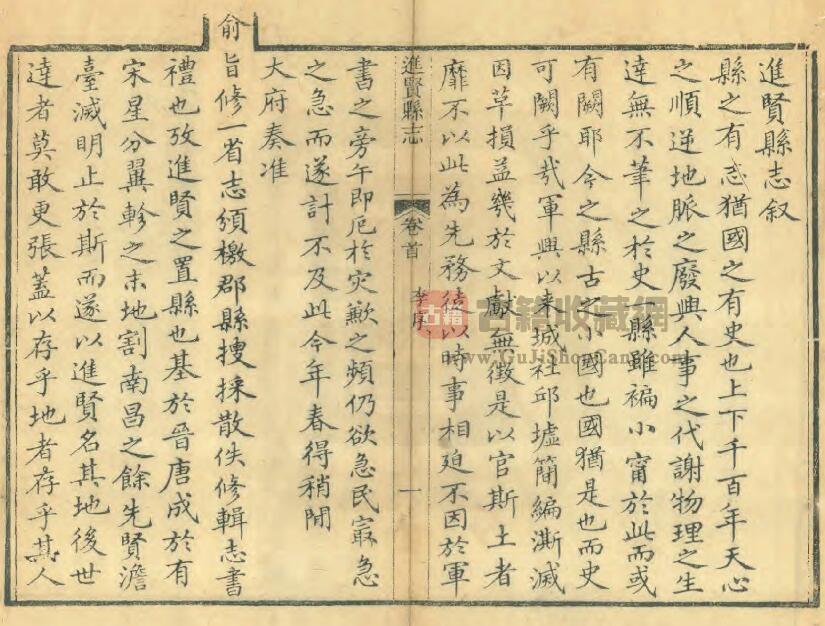 進賢縣志叙
縣之有志猶國之有史也上下千百年天心
之順逆地脈之廢興人事之代謝物理之生
達無不筆之於史一縣雖褊小甯於此而或
有闕耶今之縣古之小國也國猶是也而史
可闕乎哉軍興以来城社邱墟簡編澌滅
因革損益幾於文獻無徵是以官斯土者
靡不以此為先務徒以時事相廹不因於軍
進賢縣志
卷首
李序
一
書之旁午即厄於灾歉之頻仍欲急民㝡急
之急而遂計不及此今年春得稍閒
大府奏准
俞旨修一省志頒檄郡縣搜採散佚修輯志書
禮也攷進賢之置縣也基於晉唐成於有
宋星分翼軫之末地割南昌之餘先賢澹
臺滅明止於斯而遂以進賢名其地後世
達者莫敢更張蓋以存乎地者存乎其人
古籍
古籍收藏網
www.GuJiShouCang.com